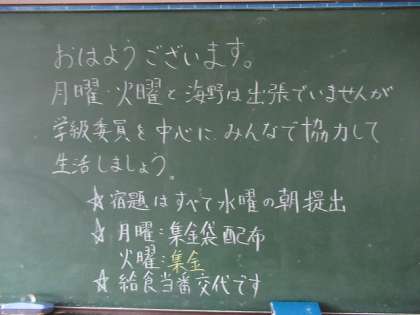 おはようございます。
月曜・火曜と海野は出張でいませんが
学級委員を中心に、みんなで協力して
生活しましょう。
☆宿題はすべて水曜の朝提出
☆月曜：集金袋配布
火曜：集金
☆給食当番交代です